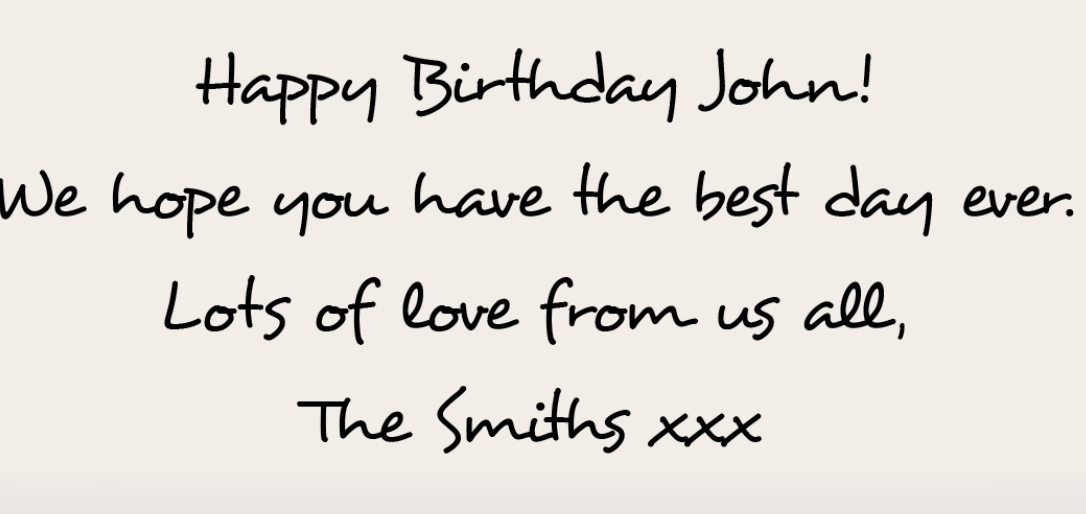 Happy Birthday John!
We hope you have the best day ever.
Lots of love from us all,
The Smiths xxx